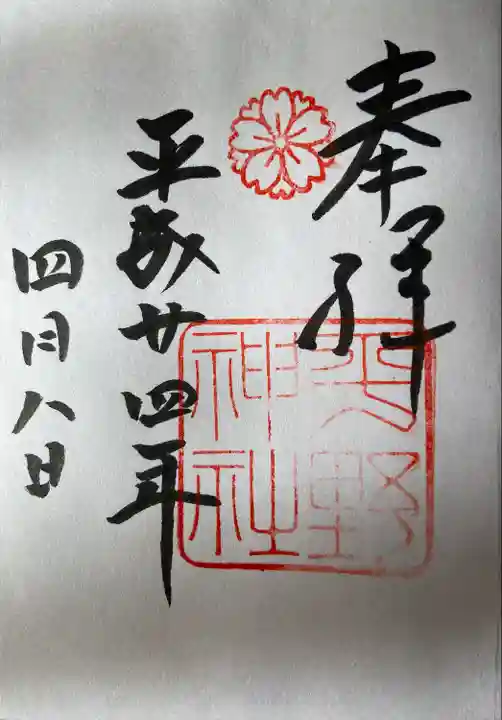 奉拝
平成廿四年
四月八日
平野
神社